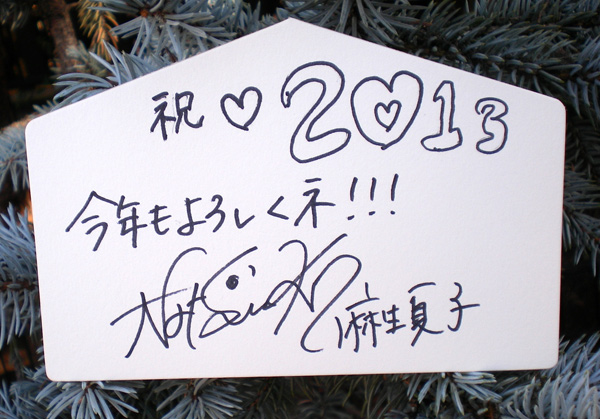 祝♡2013
今年もよろしくネ!!!
Natsuko 麻生夏子